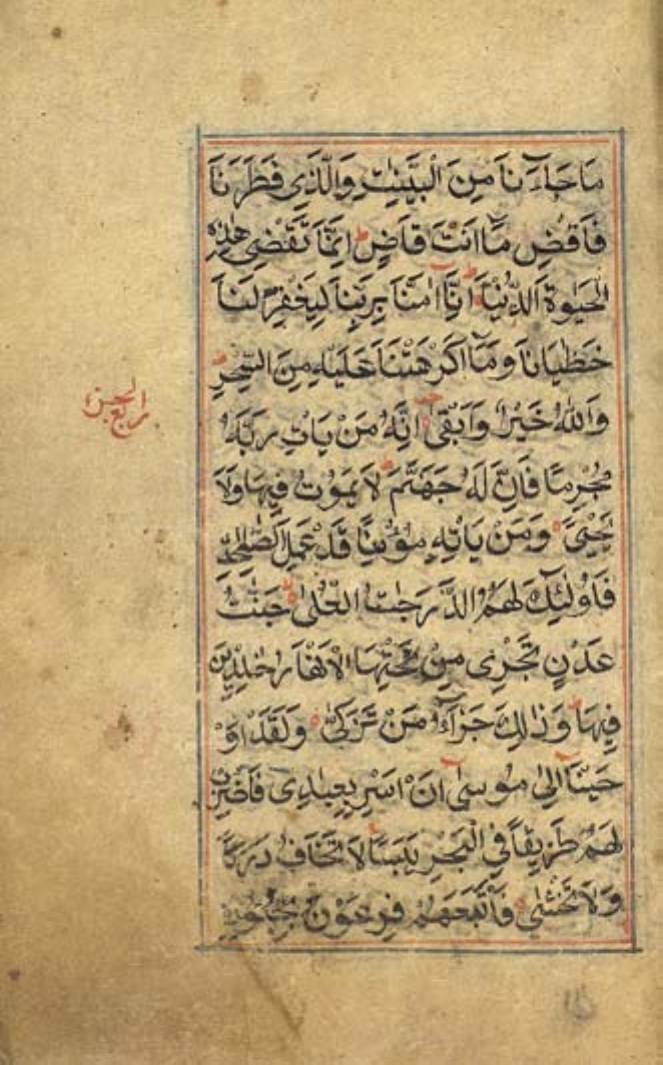 مَا جَاءَنَا مِنَ الْبَيِّنٰتِ وَالَّذِى فَطَرَنَا
فَاقْضِ مَا اَنْتَ قَاضٍ ط اِنَّمَا تَقْضِى هٰذِهِ
الْحَيٰوةَ الدُّنْيَا ط اِنَّا اٰمَنَّا بِرَبِّنَا لِيَغْفِرَ لَنَا
خَطٰيَانَا وَمَا اَكْرَهْتَنَا عَلَيْهِ مِنَ السِّحْرِ ط
وَاللّٰهُ خَيْرٌ وَاَبْقٰى اِنَّهُ مَنْ يَاْتِ رَبَّهُ
مُجْرِمًا فَاِنَّ لَهُ جَهَنَّمَ ط لَا يَمُوْتُ فِيْهَا وَلَا
يَحْيٰى وَمَنْ يَاْتِهِ مُؤْمِنًا قَدْ عَمِلَ الصّٰلِحٰتِ
فَاُولٰئِكَ لَهُمُ الدَّرَجٰتُ الْعُلٰى جَنّٰتُ
عَدْنٍ تَجْرِى مِنْ تَحْتِهَا الْاَنْهَارُ خٰلِدِيْنَ
فِيْهَا ط وَذٰلِكَ جَزَآءُ مَنْ تَزَكّٰى وَلَقَدْ اَوْ
حَيْنَا اِلٰى مُوْسٰى اَنْ اَسْرِ بِعِبَادِى فَاضْرِبْ
لَهُمْ طَرِيْقًا فِى الْبَحْرِ يَبَسًا لَا تَخَافُ دَرَكًا
وَلَا تَخْشٰى فَاَتْبَعَهُمْ فِرْعَوْنُ بِجُنُوْدِهِ
ربع الحزب